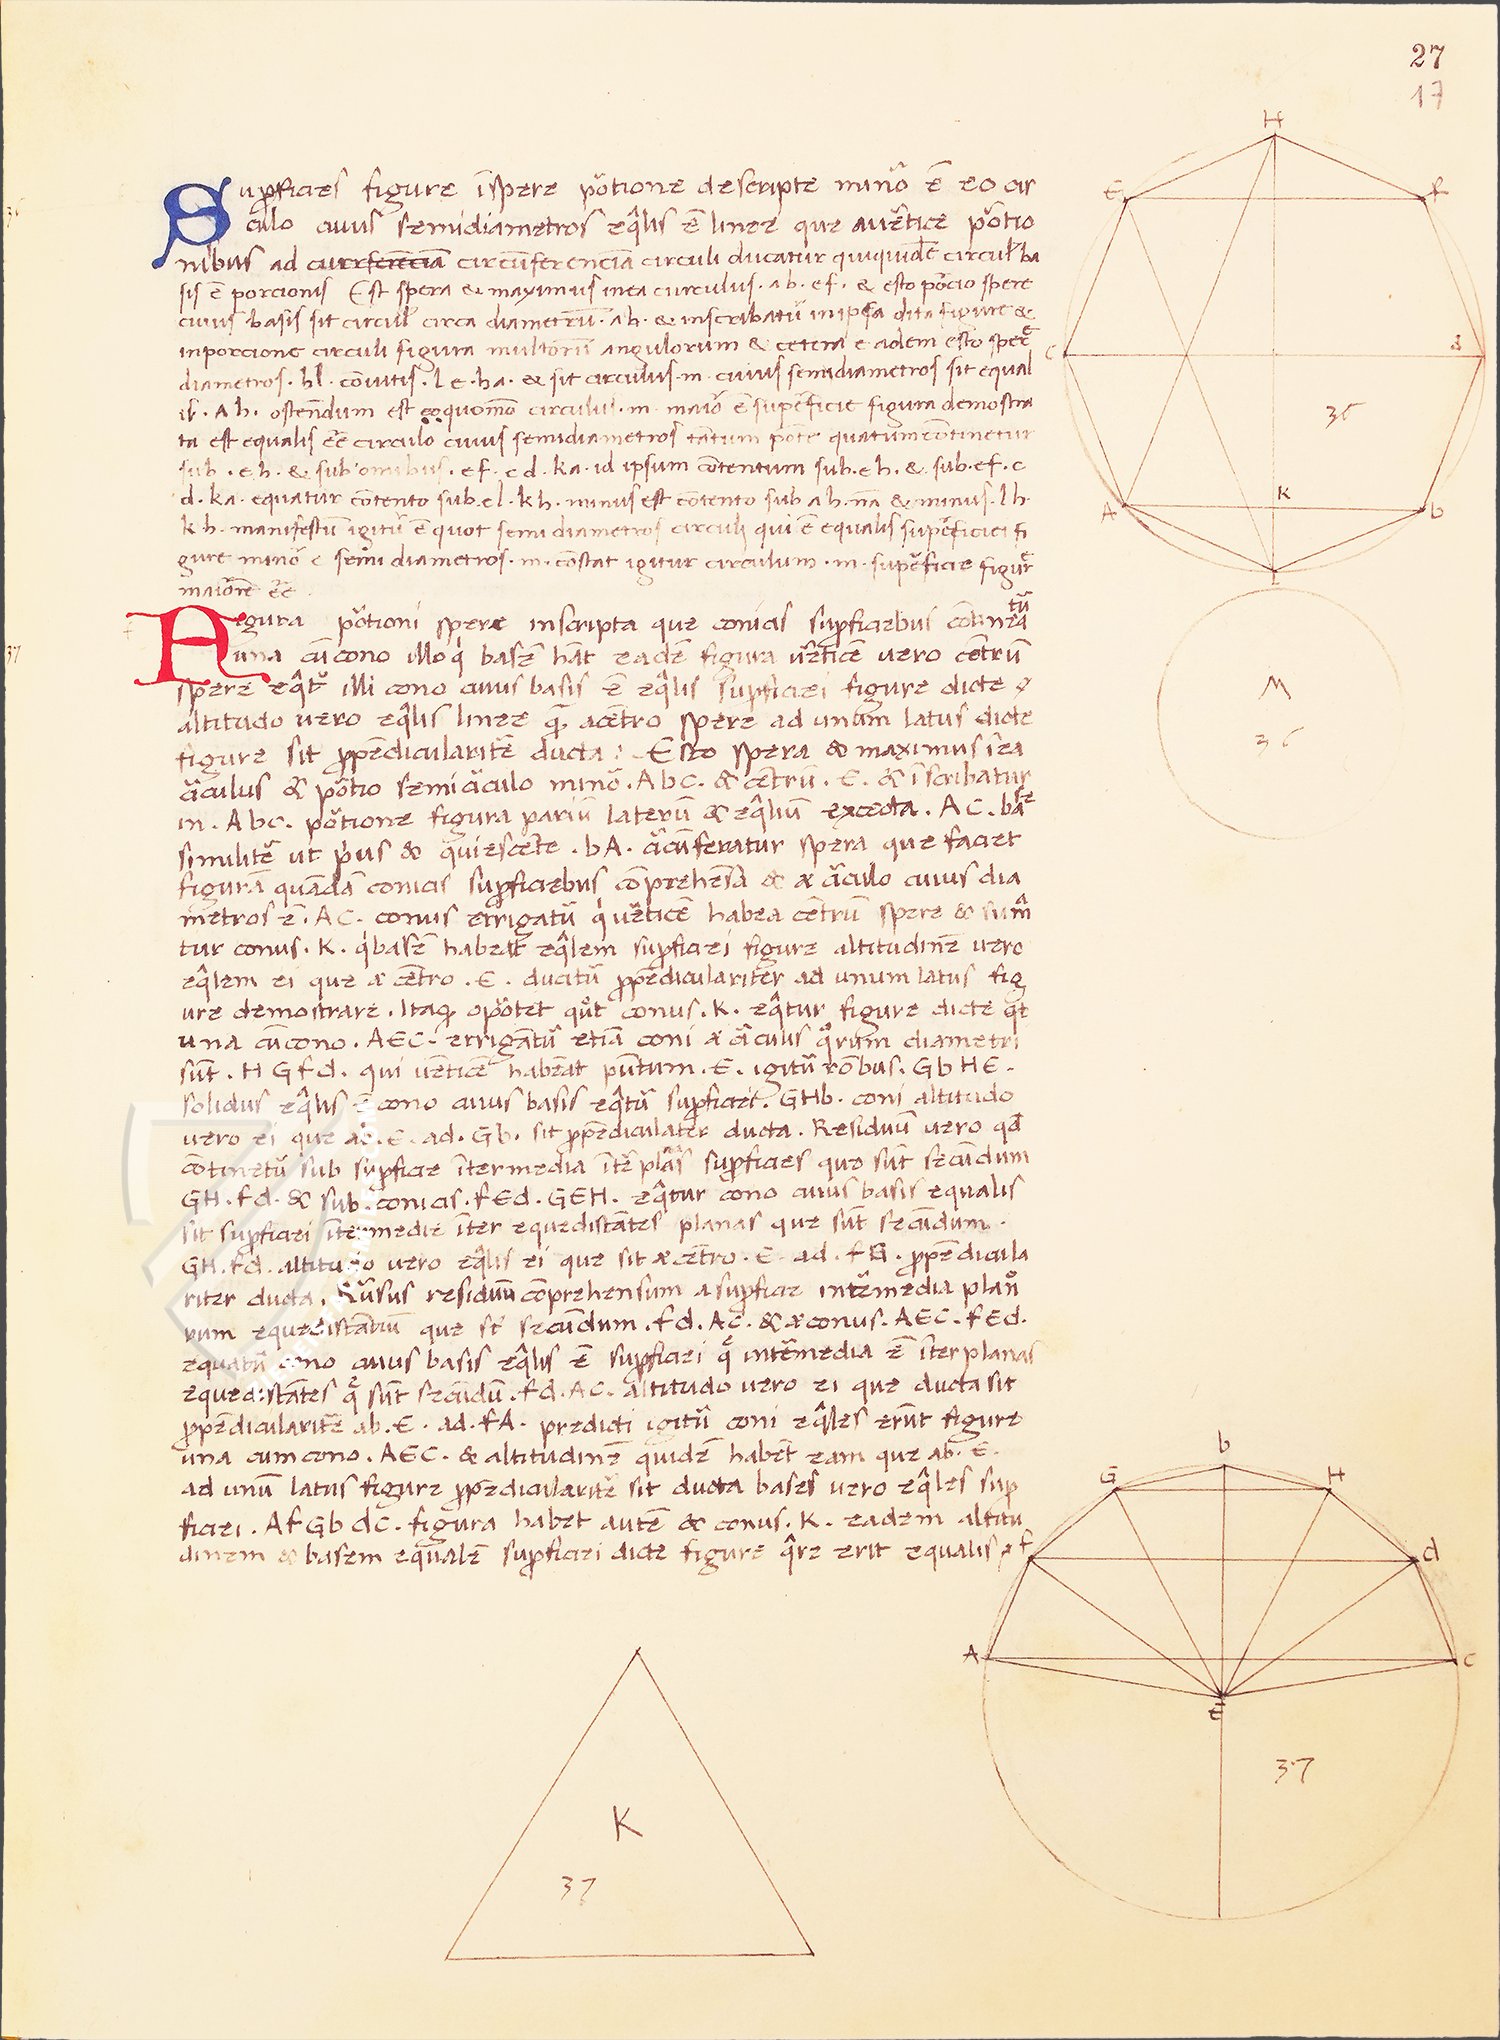 27
17
Sup̱ficies figure īspere p̄otione descripte minō ē eo cir
culo cuius semidiametros eq̄lis ē linee que auētice p̄otio
nibus ad currferēciā circūferenciā circuli ducatur quiquidē circul̄ ba
sis ē porcionis Est spera & maximus inea curculus · ab · ef · & esto pōcio spere
cuius basis sit circul̄ circa diametrū · ah · & inscribatū inipsa dita figure &
inporcione circuli figura multorū angulorum & cetera eadem esto spere
diametros · hl · cōuitis · l e · ha · & sit circulus · m · cuius semidiametros sit equal
is · Ah · ostendum est quomō circulus · m · maiō ē supēficie figura demostra
ta est equalis ēē circulo cuius semidiametros tātum pote quatum cōtinetur
sub · eh · & sub omibus · ef · cd · ka · id ipsum cōtentum sub · eh · & sub · ef · c
d · ka · equatur cōtento sub · el · kh · minus est cōtento sub ah · nā & minus · lh ·
kh · manifestū igitū ē quot semi diametros circuli qui ē equalis supēficiei fi
gure minō semi diametros · m · cōstat igitur circulum · m · supēficie figure
maiōrē ēē
Figura p̄otioni spere inscripta que conicis sup̱ficiebus cōtinea tū
una cū cono illo q̇ basē hāt eadē figura vēticē vero cētrū
spere eq̄tū illi cono cuius basis ē eq̄lis sup̱ficiei figure dicte
altitudo vero eq̄lis linee q̄ acētro spere ad unum latus dicte
figure sit p̱pēdiculariē ducta : Esto spera & maximus īea
c̄iculus & p̄otio semic̄iculo minō · Abc · & cētrū · E · & īscribatur
in · Abc · p̄otione figura pariū laterū & eq̄liū excecta · AC · base
similitē ut p̄us & quiescēte · bA · c̄icūferatur spera que faciet
figurā quādā conicis sup̱ficiebus cōprehēsā & a c̄iculo cuius dia
metros ē · AC · conus erigatū q̇ uēticē habea cētrū spere & sum̄
tur conus · K · q̇ basē habeat eq̄lem sup̱ficiei figure altitudinē vero
eq̄lem ei que a cētro · E · ducitū p̱pēdiculariter ad unum latus fig
ure demostrare · Itaq̱ opōtet quōt conus · K · eq̄tur figure dicte q̄t
una cūcono · AEC · errigātū etiā coni a c̄iculis q̊rum diametri
sūt · H G f d · qui uēticē habeāt pūtum · E · igitū rōbus · GbHE ·
solidus eq̄lis ē cono cuius basis eq̄tū sup̱ficiei · GHb · coni altitudo
vero ei que ab · E · ad · Gb · sit p̱pēdiculater ducta · Residuū vero qd̄
cōtinetū sub sup̱ficie ītermedia ītē plāās sup̱ficies que sūt secūdum
GH · fd · & sub · conicis · fEd · GEH · eq̄tur cono cuius basis equalis
sit sup̱ficiei ītermedie īter equedistātes planas que sūt secūdum ·
GH · fd · altitudo vero eq̄lis ei que sit a cētro · E · ad · fG · p̱pēdicula
riter ducta · Rūsus residuū cōprehensum a sup̱ficie intēmedia plan̊
rum equedistātiū que st̄ secūdum · fd · AC · & a conus · AEC · fEd ·
equatū cono cuius basis eq̄lis ē sup̱ficiei q̄ intēmedia ē īter planas
equedistātes q̄ sūt secūdū · fd · AC · altitudo vero ei que ducta sit
p̱pēdicularitē ab · E · ad · fA · predicti igitū coni eq̄les erūt figure
una cum cono · AEC · & altitudinē quidē habēt eam que ab · E ·
ad unū latus figure p̱pēdicularitē sit ducta bases vero eq̄les sup̱
ficiei · AfGbdC · figura habet autē & conus · K · eadem altitu
dinem & basem equalē sup̱ficiei dicte figure q̄re erit equalis
36
37
H
E
f
C
d
36
A
K
b
L
M
36
b
G
H
f
d
A
C
E
37
K
37